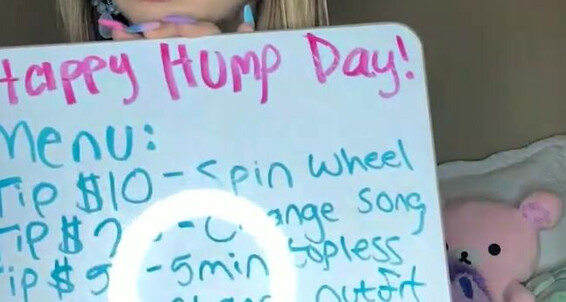 Happy Hump Day!
Menu:
Tip $10 - Spin wheel
Tip $ - Change song
Tip $5 - 5min topless
outfit